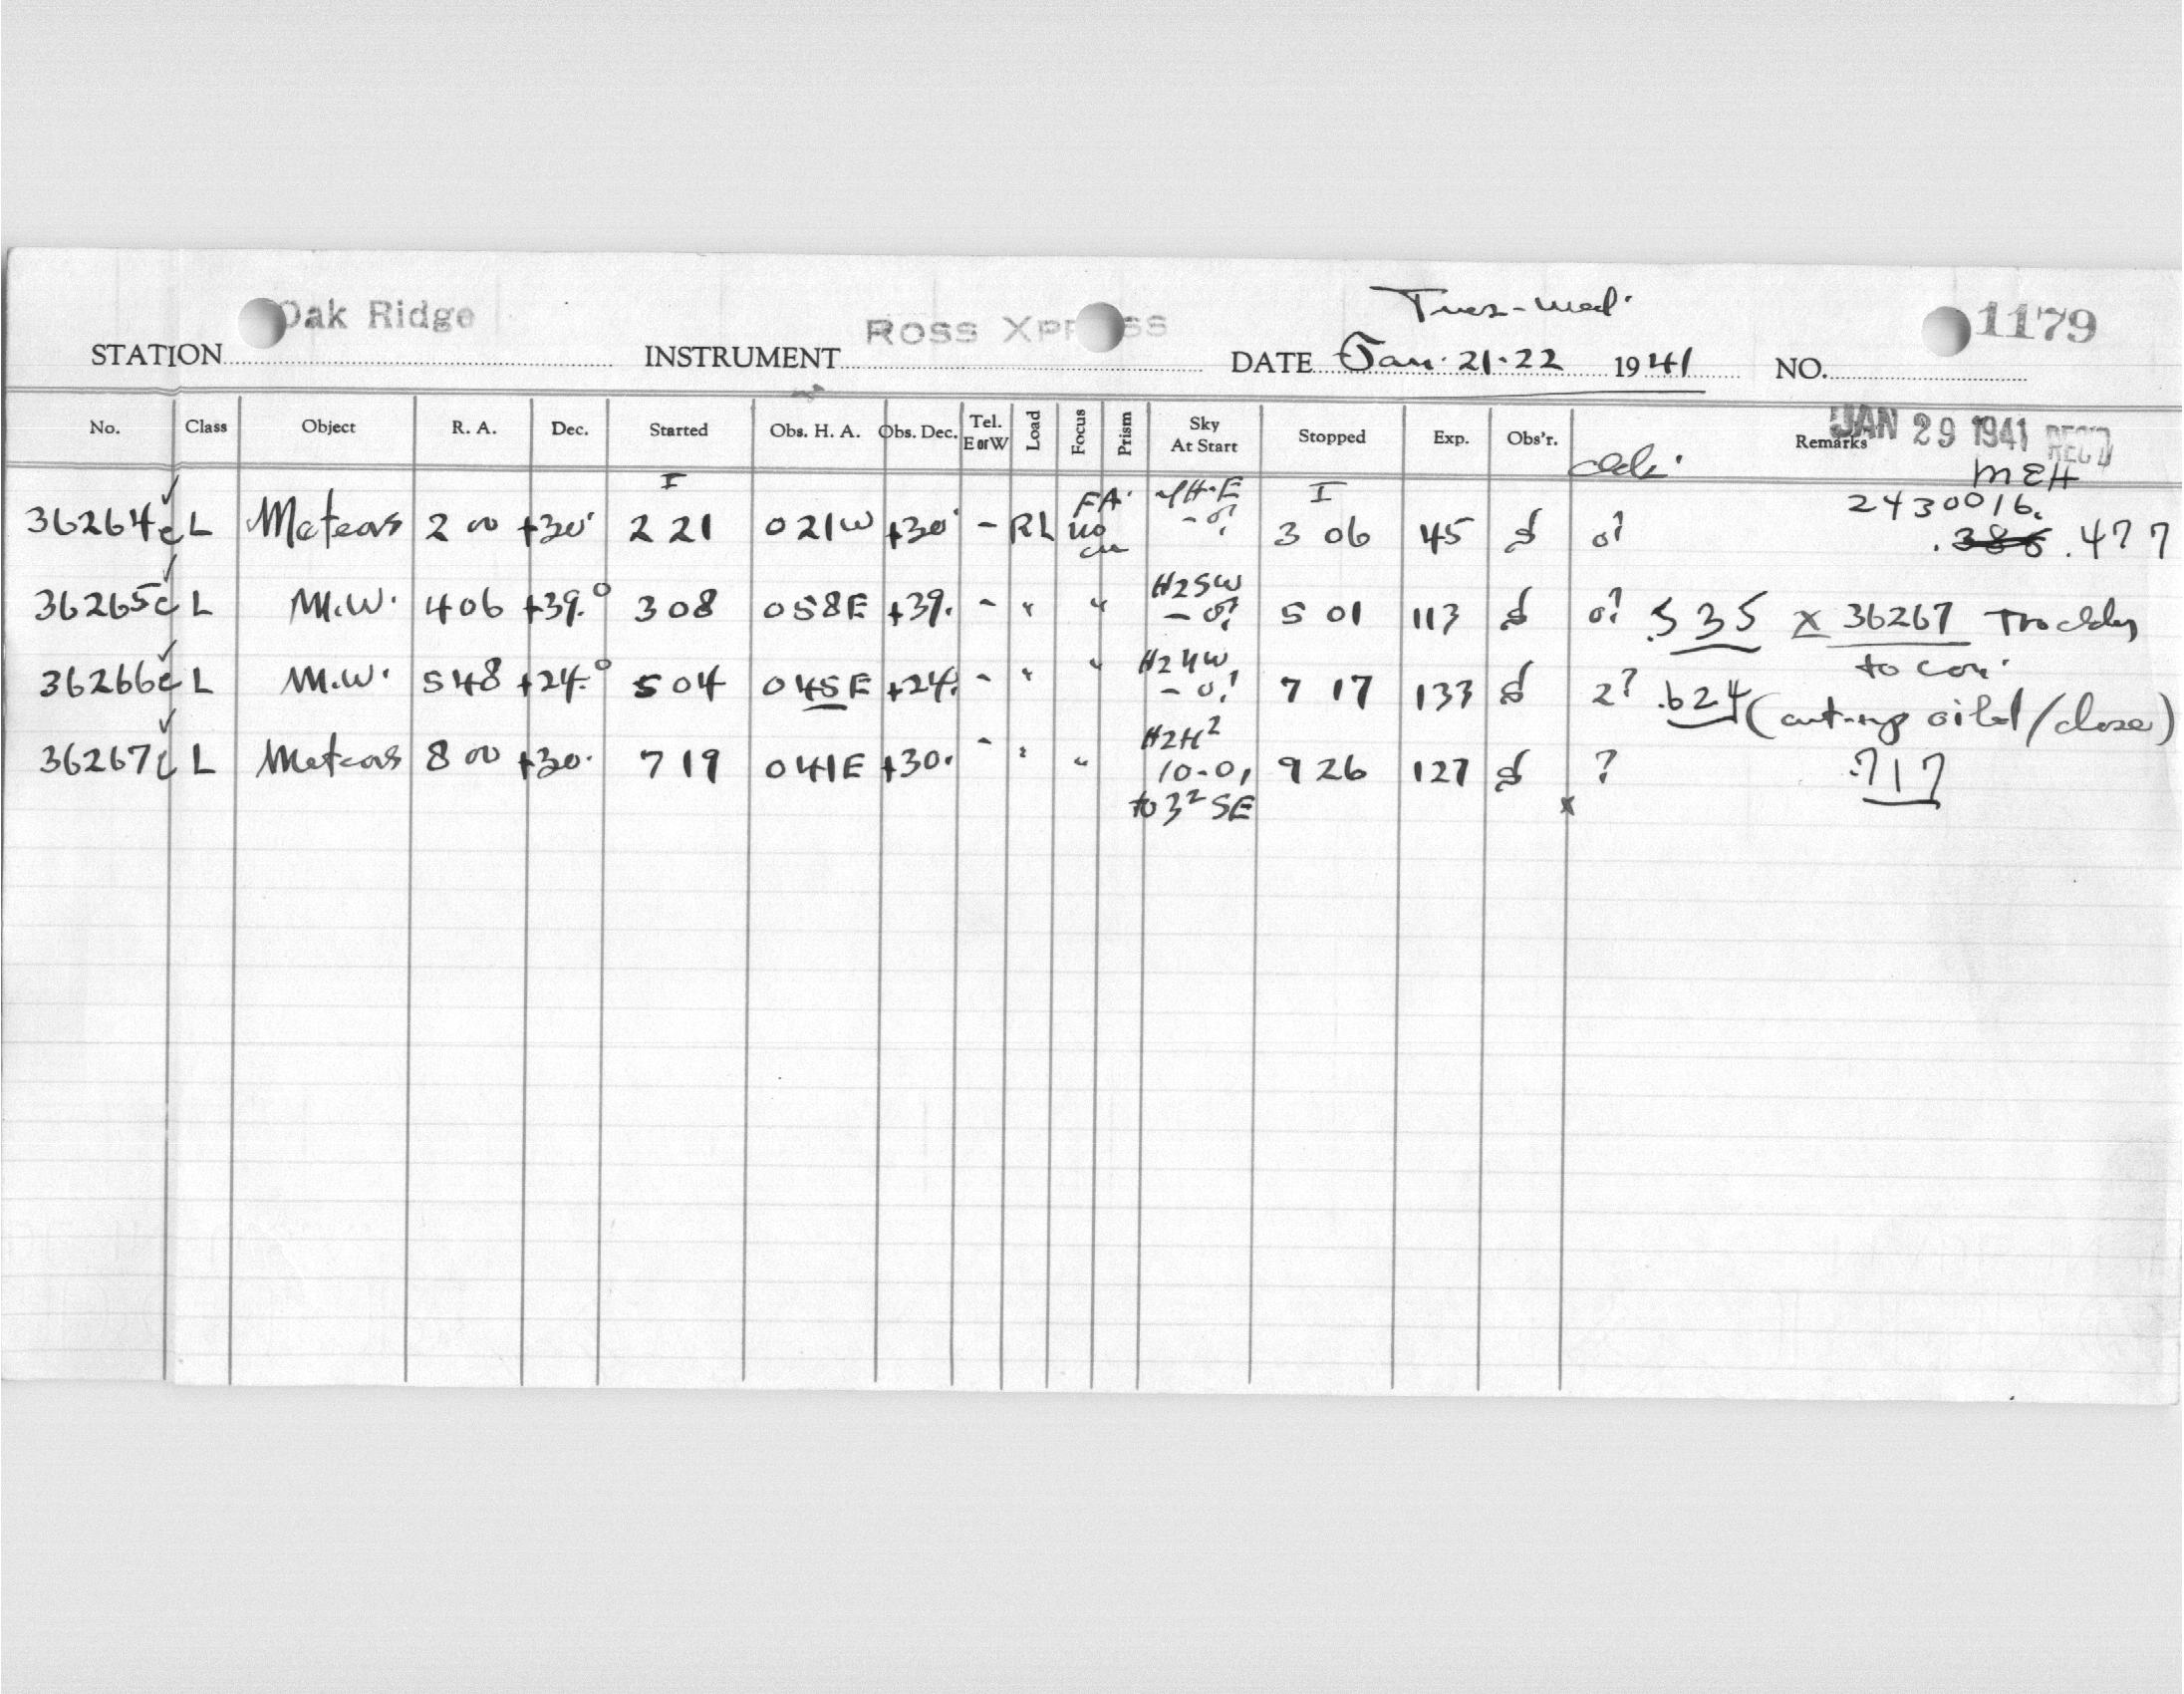 Oak Ridge
Ross Xpress
Tues-Wed.
1179
STATION
INSTRUMENT
DATE Jan. 21-22 1941
NO.
No. Class Object R. A. Dec. Started Obs. H. A. Obs. Dec. Tel. E or W Load Focus Prism Sky At Start Stopped Exp. Obs'r. Remarks
JAN 29 1941 REC'D
MEH
I I 2430016.
36264c L Meteors 2 00 +30° 2 21 0 21 W +30° - RL FA. no 3 06 45 .386 .477
36265c L M.W. 4 06 +39.° 3 08 0 58 E +39. - " " H2SW 5 01 113 .535 x 36267
36266c L M.W. 5 48 +24.° 5 04 0 45 E +24. - " " 7 17 133 2? .624 (cut-up oiled/close)
36267c L Meteors 8 00 +30. 7 19 0 41 E +30. - " " H2H² 10-0, to 3² SE 9 26 127 ? .717
x